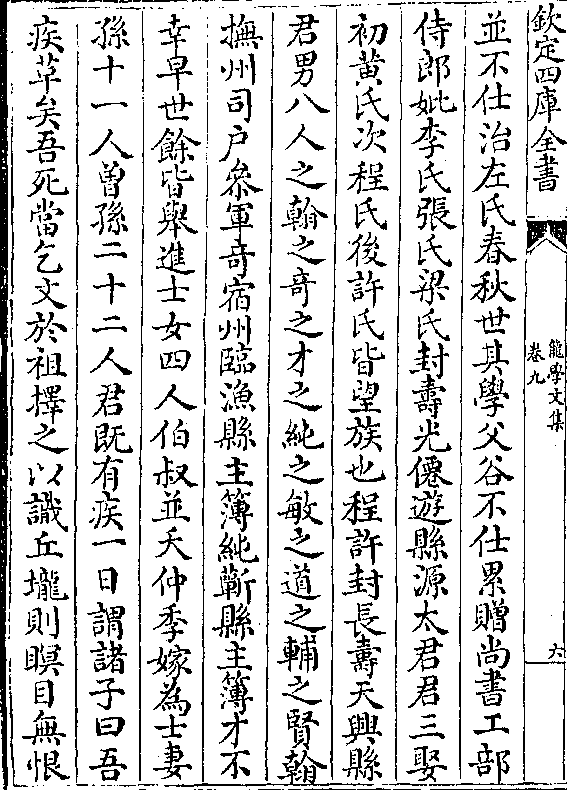 欽定四庫全書
龍學文集
卷九
六
並不仕治左氏春秋世其學父谷不仕累贈尚書工部
侍郎妣李氏張氏梁氏封壽光僊遊縣源太君君三娶
初黄氏次程氏後許氏皆望族也程許封長壽天興縣
君男八人之翰之竒之才之純之敏之道之輔之賢翰
撫州司户叅軍竒宿州臨渙縣主簿純蘄縣主簿才不
幸早世餘皆舉進士女四人伯叔並夭仲季嫁為士妻
孫十一人曽孫二十二人君既有疾一日謂諸子曰吾
疾革矣吾死當乞文於祖擇之以識丘壠則瞑目無恨